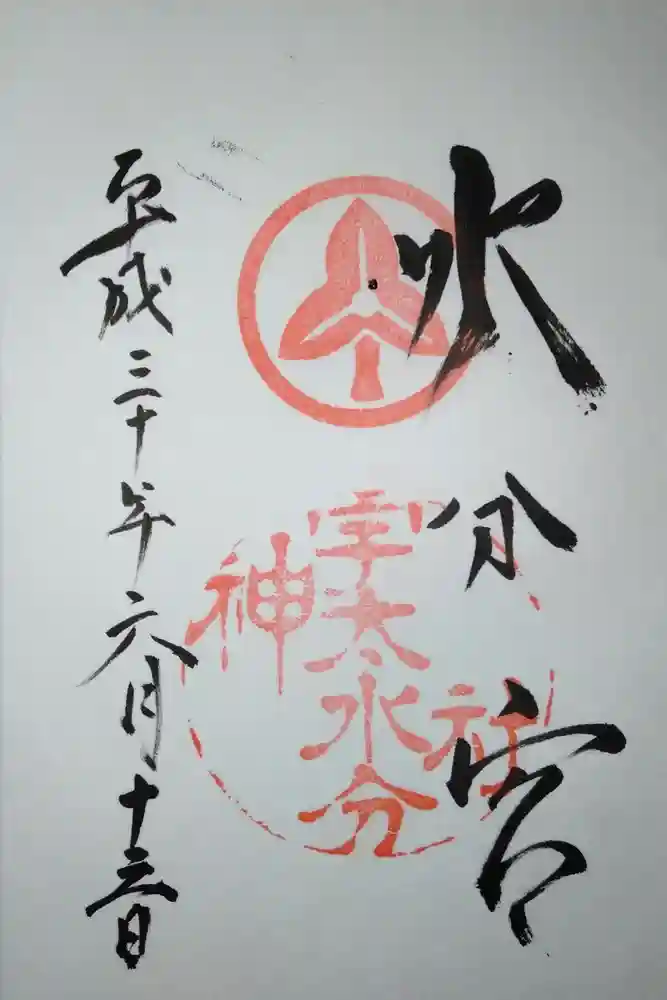 水分宮
宇太水分
神社
平成三十年六月十三日